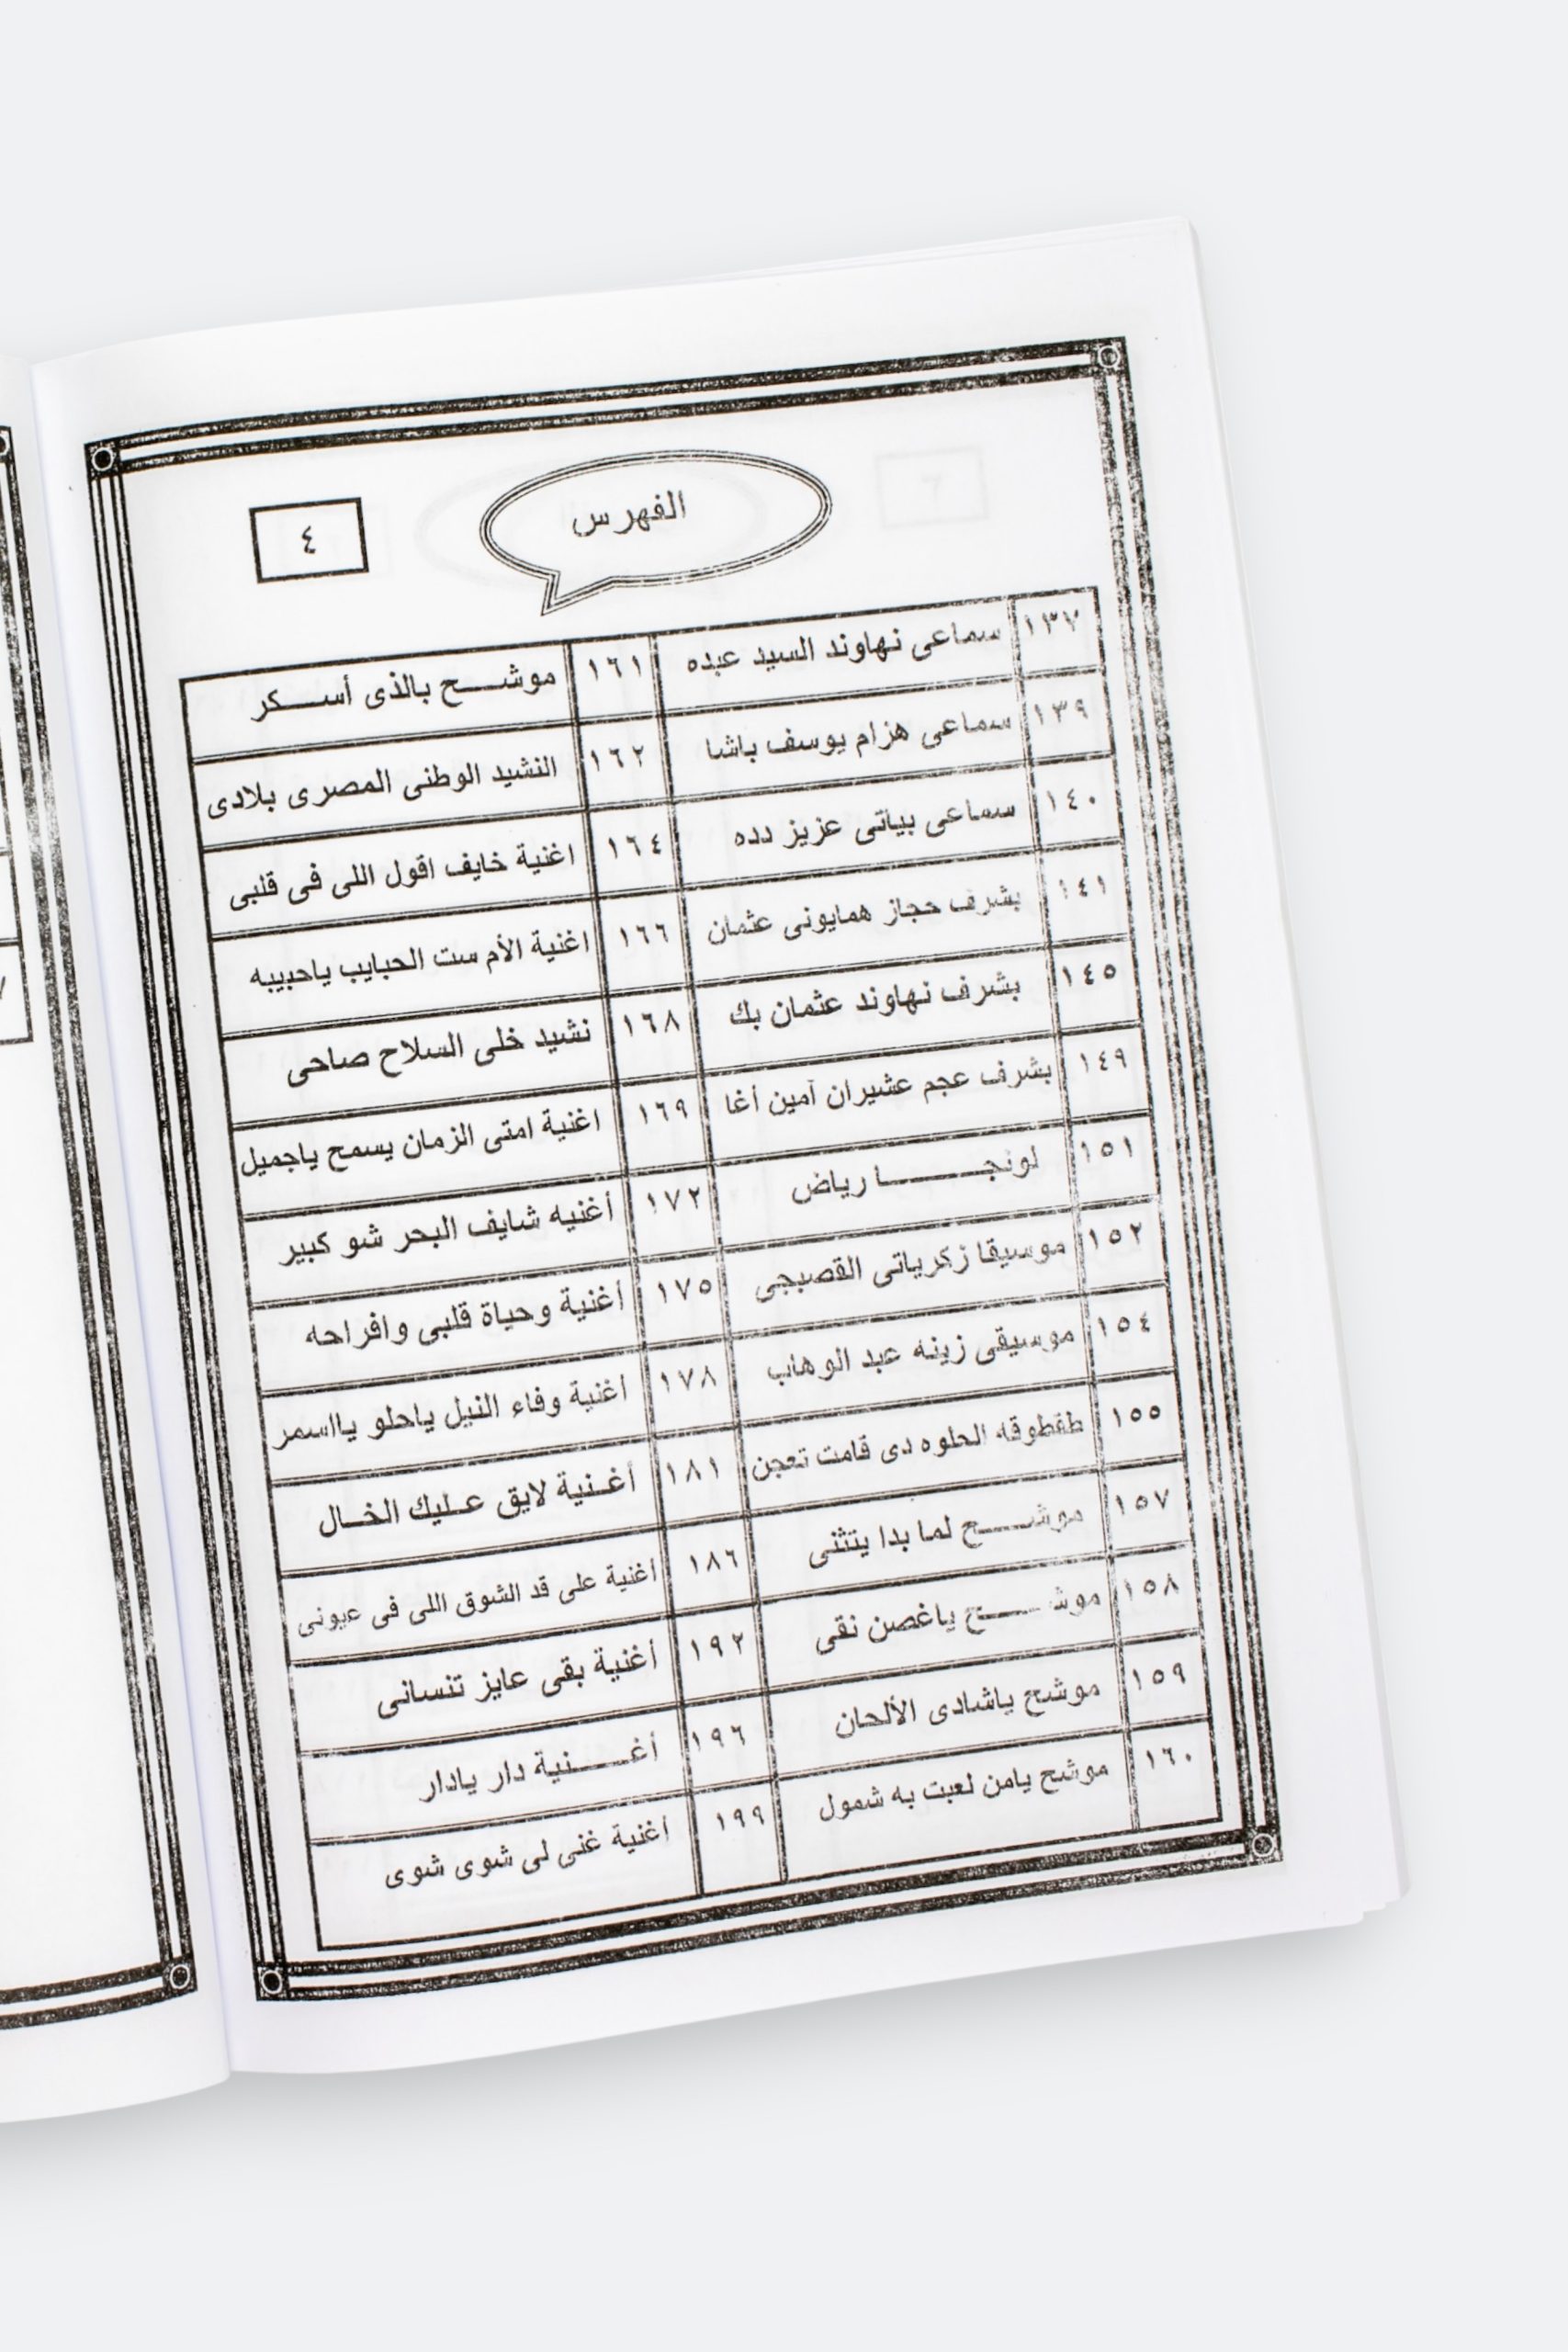 الفهرس
٤
١٣٧ سماعى نهاوند السيد عبده ١٦١ موشـــح بالذى أســـكر
١٣٩ سماعى هزام يوسف باشا ١٦٢ النشيد الوطنى المصرى بلادى
١٤٠ سماعى بياتى عزيز دده ١٦٤ اغنية خايف اقول اللى فى قلبى
١٤١ بشرف حجاز همايونى عثمان ١٦٦ اغنية الأم ست الحبايب ياحبيبه
١٤٥ بشرف نهاوند عثمان بك ١٦٨ نشيد خلى السلاح صاحى
١٤٩ بشرف عجم عشيران آمين أغا ١٦٩ اغنية امتى الزمان يسمح ياجميل
١٥١ لونجــــــا رياض ١٧٢ أغنيه شايف البحر شو كبير
١٥٢ موسيقا زكرياتى القصبجى ١٧٥ أغنية وحياة قلبى وافراحه
١٥٤ موسيقى زينه عبد الوهاب ١٧٨ اغنية وفاء النيل ياحلو يااسمر
١٥٥ طقطوقه الحلوه دى قامت تعجن ١٨١ أغـنية لايق عـليك الخـال
١٥٧ موشـــح لما بدا يتثنى ١٨٦ أغنية على قد الشوق اللى فى عيونى
١٥٨ موشـــح ياغصن نقى ١٩٢ أغنية بقى عايز تنسانى
١٥٩ موشح ياشادى الألحان ١٩٦ أغــــنية دار يادار
١٦٠ موشح يامن لعبت به شمول ١٩٩ أغنية غنى لى شوى شوى